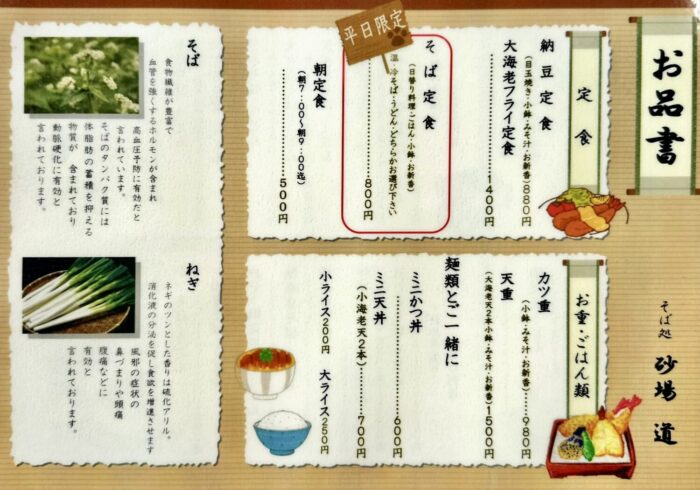 お品書
そば処 砂場 道
定食
納豆定食
(目玉焼き・小鉢・みそ汁・お新香)880円
大海老フライ定食
……………1400円
平日限定
そば定食
(日替り料理・ごはん・小鉢・お新香)
温・冷そば・うどん・どちらかお選び下さい
……………800円
朝定食
(朝7:00〜朝9:00迄)
……………500円
お重・ごはん類
カツ重
(小鉢・みそ汁・お新香)……980円
天重
(大海老天2本小鉢・みそ汁・お新香)1500円
麺類とご一緒に
ミニかつ丼
……………600円
ミニ天丼
(小海老天2本)……700円
小ライス200円 大ライス250円
そば
食物繊維が豊富で
血管を強くするホルモンが含まれ
高血圧予防に有効だと
言われています。
そばのタンパク質には
体脂肪の蓄積を抑える
物質が 含まれており
動脈硬化に有効と
言われております。
ねぎ
ネギのツンとした香りは硫化アリル。
消化液の分泌を促し食欲を増進させます
風邪の症状の
鼻づまりや頭痛
腹痛などに
有効と
言われております。